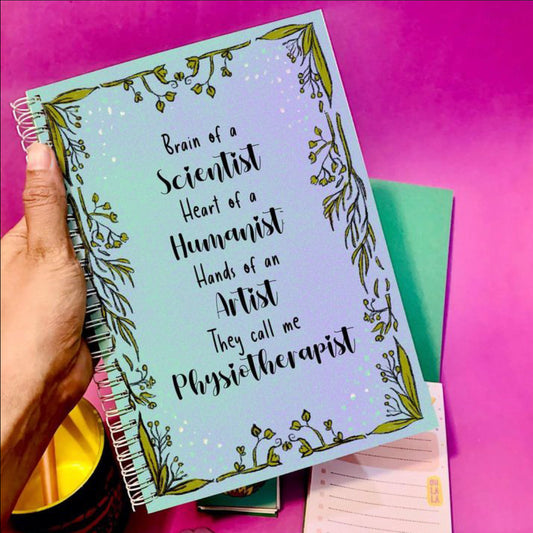 Brain of a
Scientist
Heart of a
Humanist
Hands of an
Artist
They call me
Physiotherapist